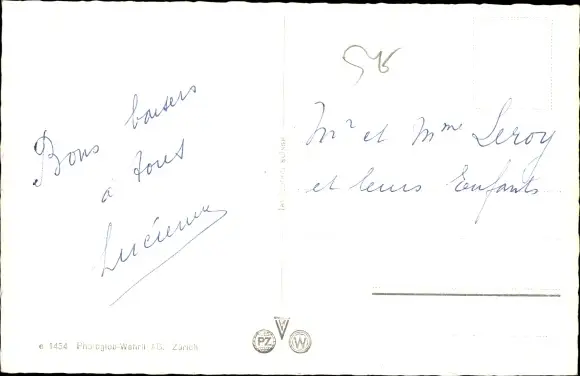 Bons baisers
à tous
Lucienne
Mr et Mme Leroy
et leurs Enfants
e 1434 Photoglob-Wehrli AG. Zürich
PZ
W